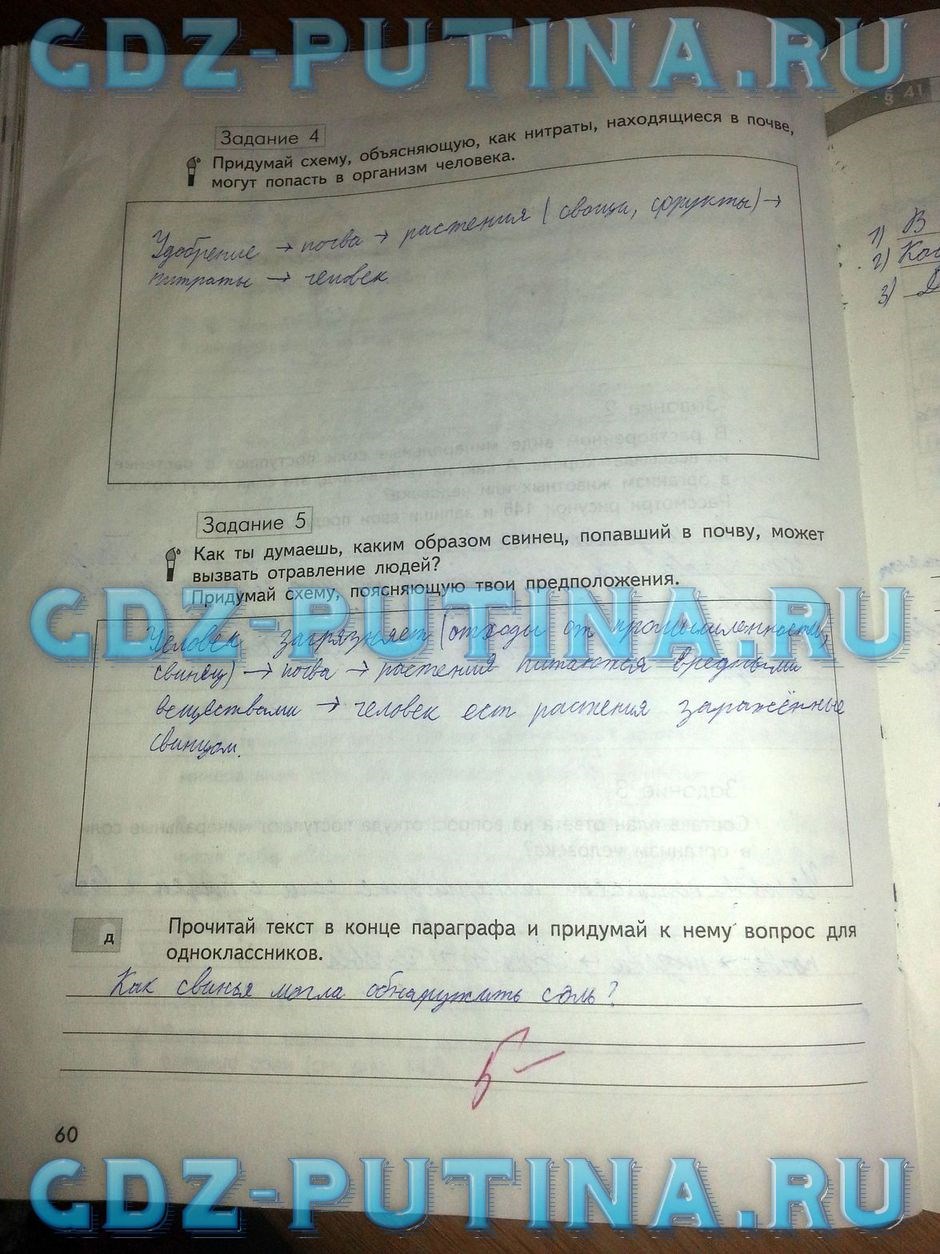 GDZ-PUTINA.RU
§ 41
Задание 4
Придумай схему, объясняющую, как нитраты, находящиеся в почве,
могут попасть в организм человека.
Удобрение → почва → растения (овощи, фрукты) →
нитраты → человек.
1) В
2) Кас
3)
Задание 5
Как ты думаешь, каким образом свинец, попавший в почву, может
вызвать отравление людей?
Придумай схему, поясняющую твои предположения.
GDZ-PUTINA.RU
Человек загрязняет (отходы от промышленности,
свинец) → почва → растения питаются вредными
веществами → человек ест растения заражённые
свинцом.
Задание 2
Задание 3
Составь план ответа на вопрос: откуда поступают минеральные соли
в организм человека?
д
Прочитай текст в конце параграфа и придумай к нему вопрос для
одноклассников.
Как свинья могла обнаружить соль?
5-
60
GDZ-PUTINA.RU